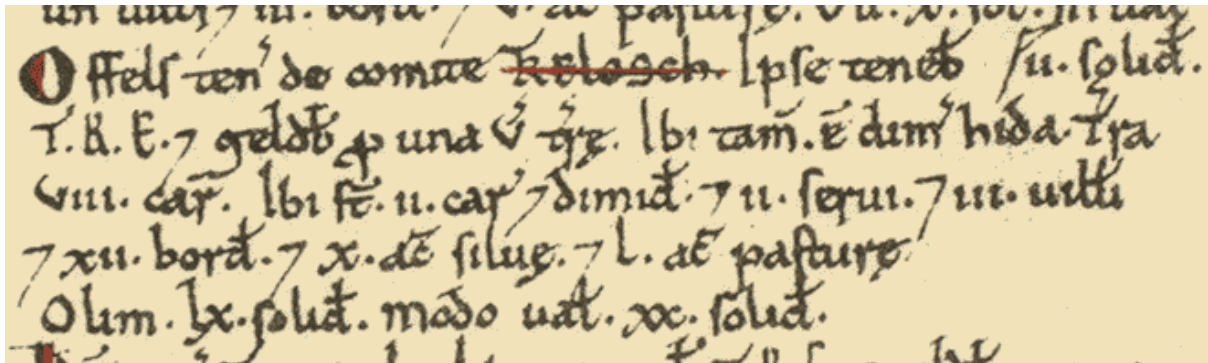 7 iii. bord. 7 ac pasturę. x. sol.
Offels ten' de comite TRELOSCH. Ipse teneb̄ v. solid̄.
T.R.E. 7 geldb̄ ꝓ una v̄ t̄rę. Ibi tam̄. ē dim' hida. T̄ra
viii. car̄. Ibi st̄. ii. car' 7 dimid̄. 7 ii. serui. 7 iii. uilłi
7 xii. bord̄. 7 x. ac̄ siluę. 7 l. ac̄ pasturę
Olim. lx. solid̄. modo uał. xx. solid̄.